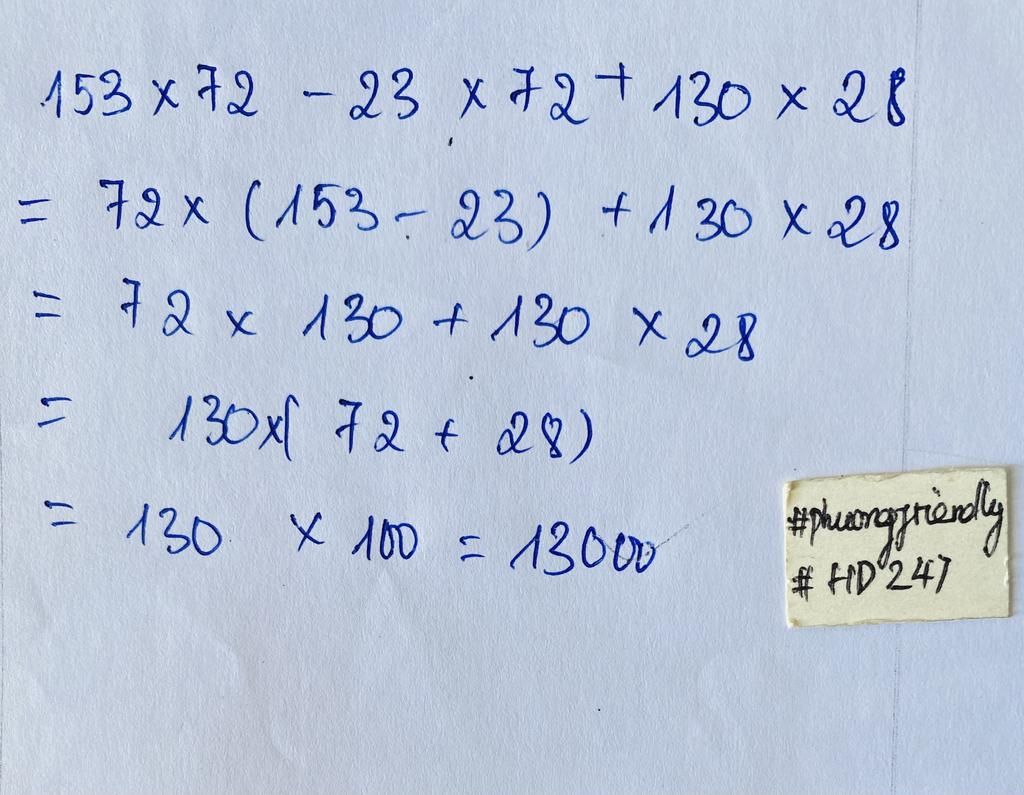 153 × 72 - 23 × 72 + 130 × 28
= 72 × (153 - 23) + 130 × 28
= 72 × 130 + 130 × 28
= 130 × ( 72 + 28)
= 130 × 100 = 13000
#phuongfriendly
# HD 247